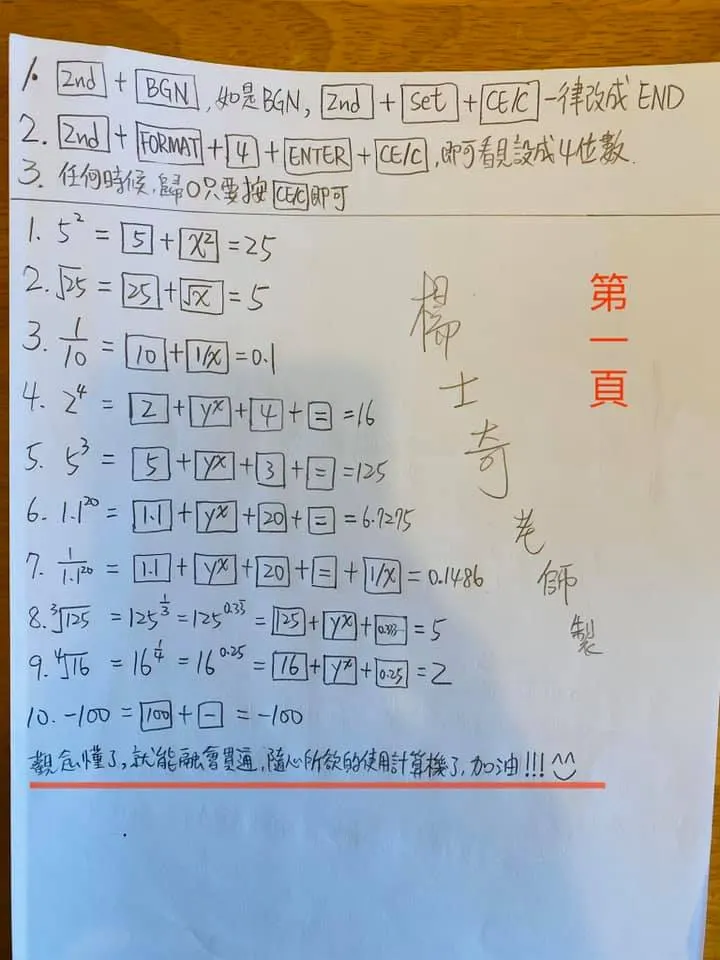 1. 2nd + BGN, 如是BGN, 2nd + Set + CE/C 一律改成 END
2. 2nd + FORMAT + 4 + ENTER + CE/C, 即可看見設成4位數.
3. 任何時候, 歸0只要按 CE/C 即可
1. 5² = 5 + x² = 25
2. √25 = 25 + √x = 5
3. 1/10 = 10 + 1/x = 0.1
4. 2⁴ = 2 + yˣ + 4 + = = 16
5. 5³ = 5 + yˣ + 3 + = = 125
6. 1.1²⁰ = 1.1 + yˣ + 20 + = = 6.7275
7. 1/1.1²⁰ = 1.1 + yˣ + 20 + = + 1/x = 0.1486
8. ³√125 = 125^(1/3) = 125^0.33 = 125 + yˣ + 0.333 = 5
9. ⁴√16 = 16^(1/4) = 16^0.25 = 16 + yˣ + 0.25 = 2
10. -100 = 100 + - = -100
觀念懂了, 就能融會貫通, 隨心所欲的使用計算機了, 加油!!! ^^
楊士奇老師製
第一頁